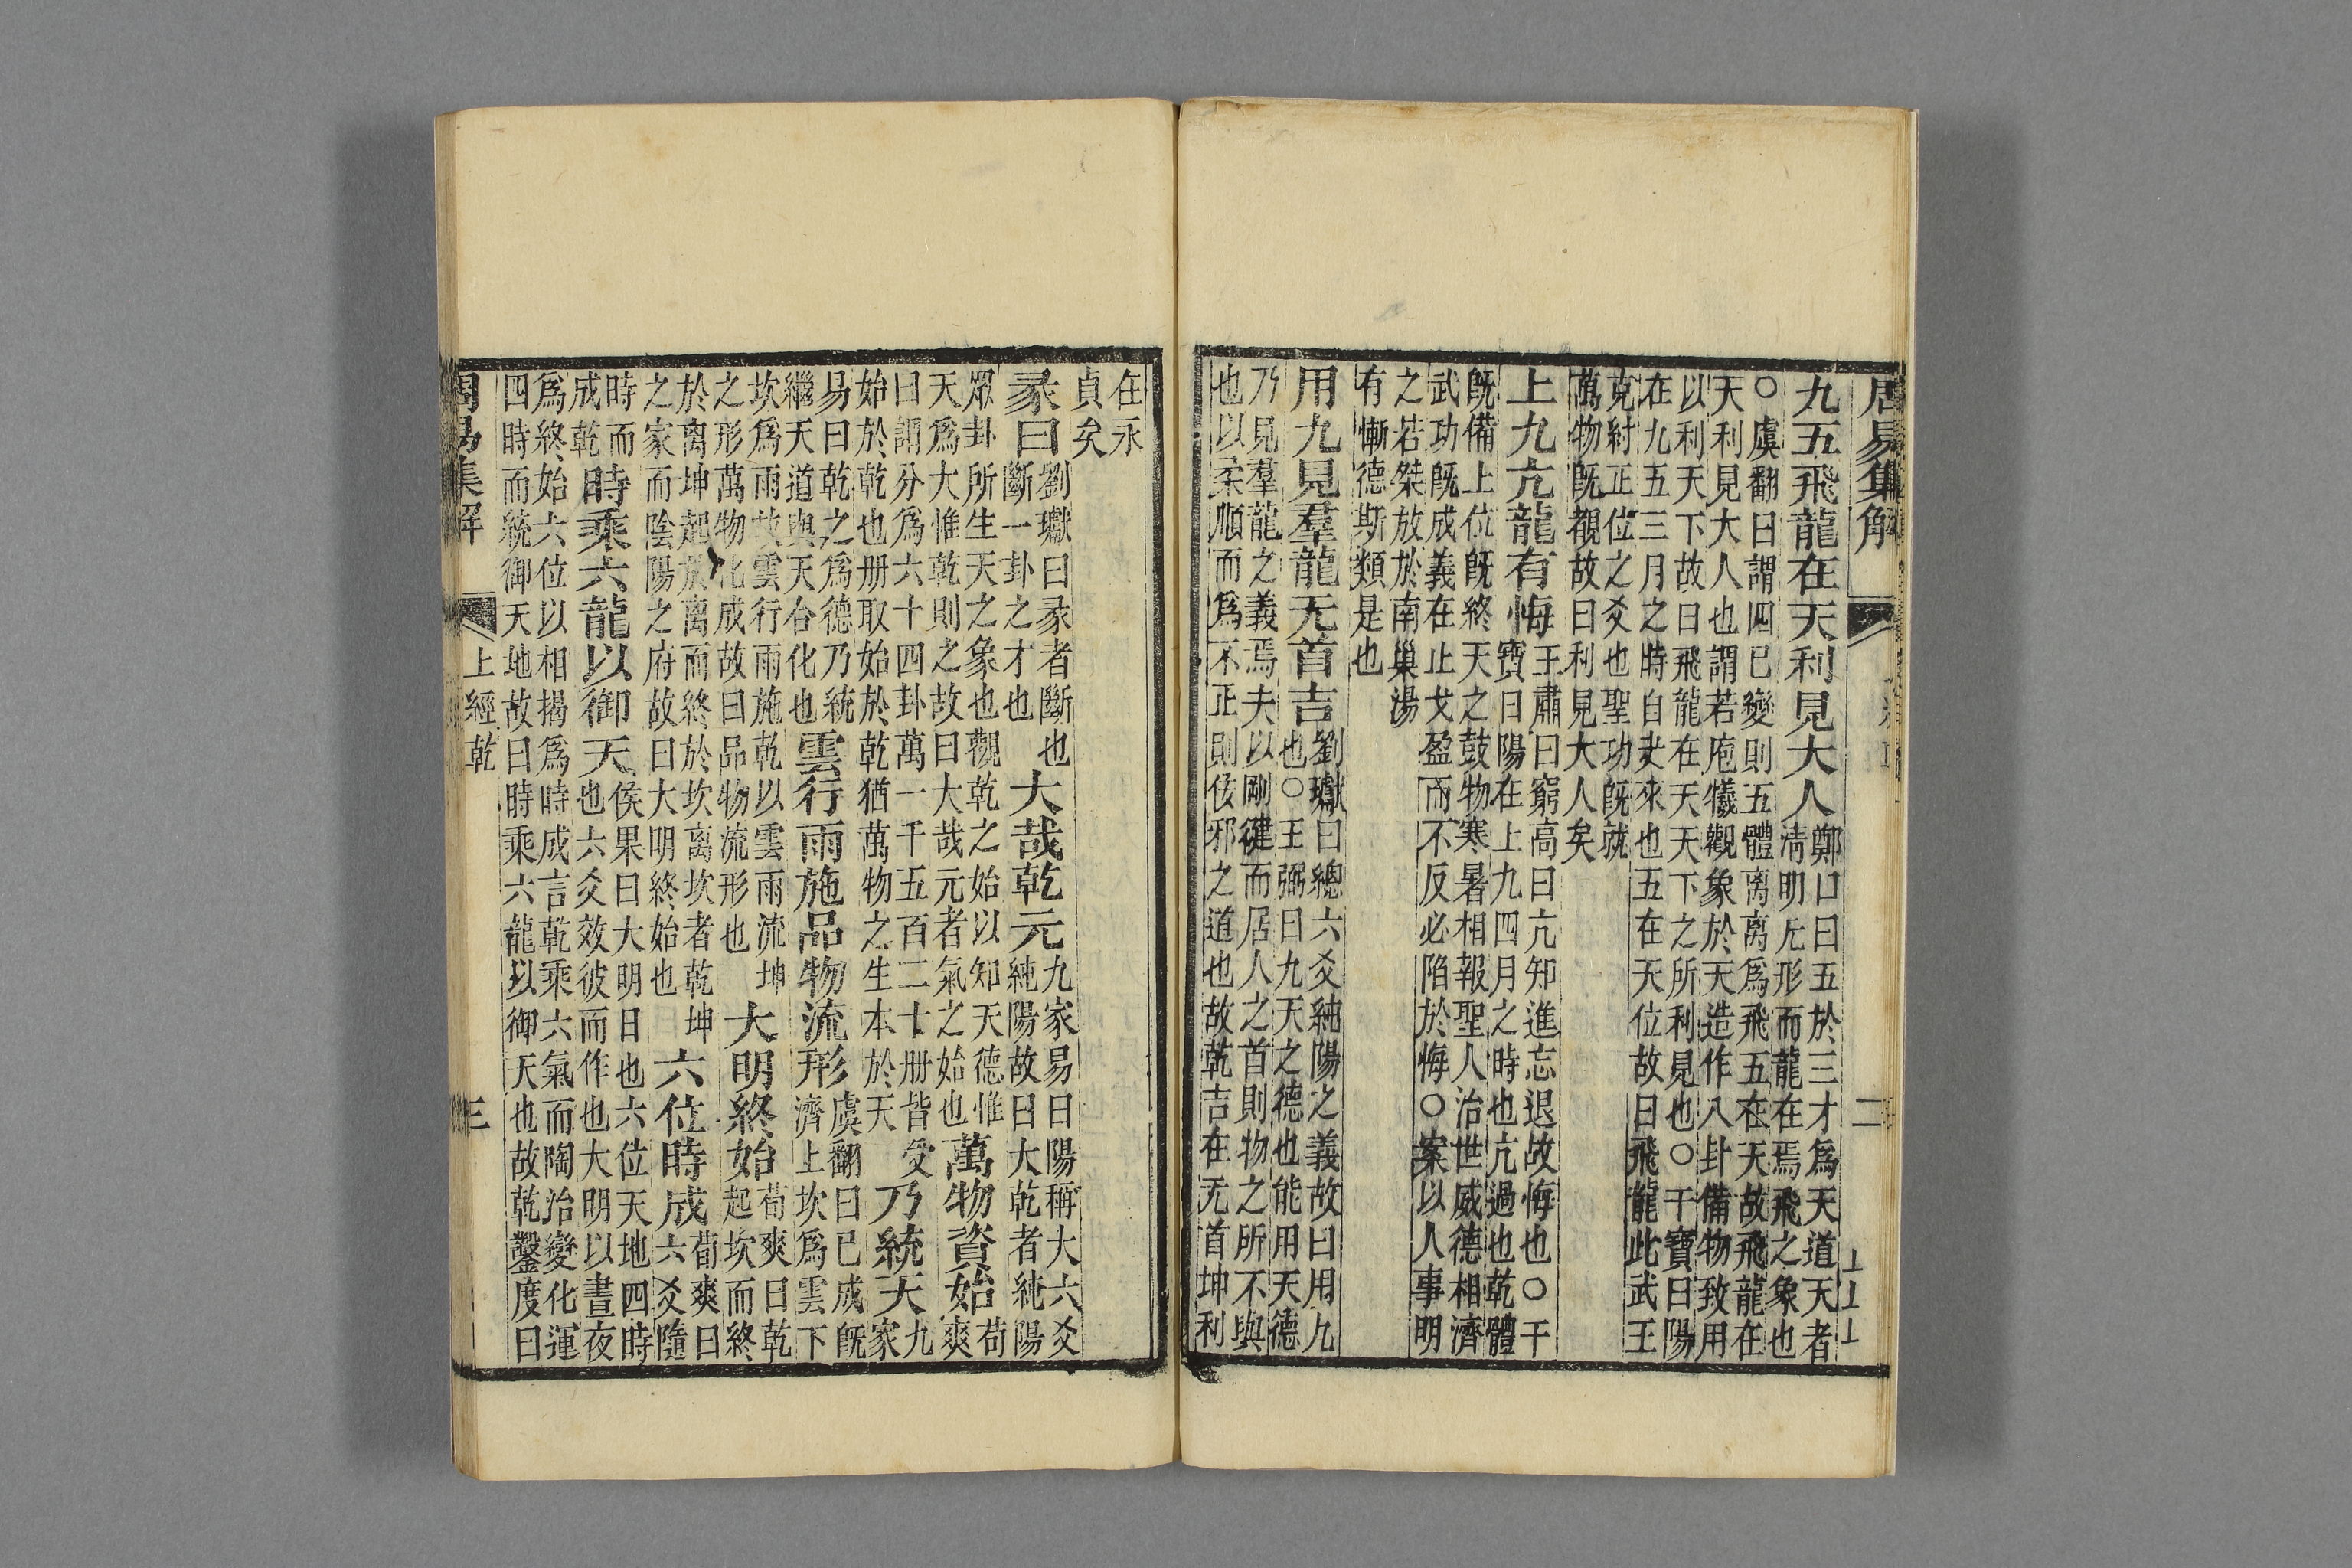 周易集解
二
九五飛龍在天利見大人
鄭口曰五於三才爲天道天者
清明无形而龍在焉飛之象也
○虞翻曰謂四已變則五體离离爲飛五在天故飛龍在
天利見大人也謂若庖犧觀象於天造作八卦備物致用
以利天下故曰飛龍在天天下之所利見也○干寶曰陽
在九五三月之時自夬來也五在天位故曰飛龍此武王
克紂正位之爻也聖功旣就
萬物旣覩故曰利見大人矣
上九亢龍有悔
王肅曰窮高曰亢知進忘退故悔也○干
寶曰陽在上九四月之時也亢過也乾體
旣備上位旣終天之鼓物寒暑相報聖人治世威德相濟
武功旣成義在止戈盈而不反必陷於悔○案以人事明
之若桀放於南巢湯
有慚德斯類是也
用九見羣龍无首吉
劉瓛曰總六爻純陽之義故曰用九
也○王弼曰九天之德也能用天德
乃見羣龍之義焉夫以剛健而居人之首則物之所不與
也以柔順而爲不正則佞邪之道也故乾吉在无首坤利
在永
貞矣
彖曰
劉瓛曰彖者斷也
斷一卦之才也
大哉乾元
九家易曰陽稱大六爻
純陽故曰大乾者純陽
眾卦所生天之象也觀乾之始以知天德惟
天爲大惟乾則之故曰大哉元者氣之始也
萬物資始
荀
爽
曰謂分爲六十四卦萬一千五百二十册皆受
始於乾也册取始於乾猶萬物之生本於天
乃統天
九
家
易曰乾之爲德乃統
繼天道與天合化也
雲行雨施品物流形
虞翻曰已成旣
濟上坎爲雲下
坎爲雨故雲行雨施乾以雲雨流坤
之形萬物化成故曰品物流形也
大明終始
荀爽曰乾
起坎而終
於离坤起於离而終於坎离坎者乾坤
之家而陰陽之府故曰大明終始也
六位時成
荀爽曰
六爻隨
時而
成乾
時乘六龍以御天
侯果曰大明日也六位天地四時
也六爻效彼而作也大明以晝夜
爲終始六位以相揭爲時成言乾乘六氣而陶冶變化運
四時而統御天地故曰時乘六龍以御天也故乾鑿度曰
周易集解
上經乾
三